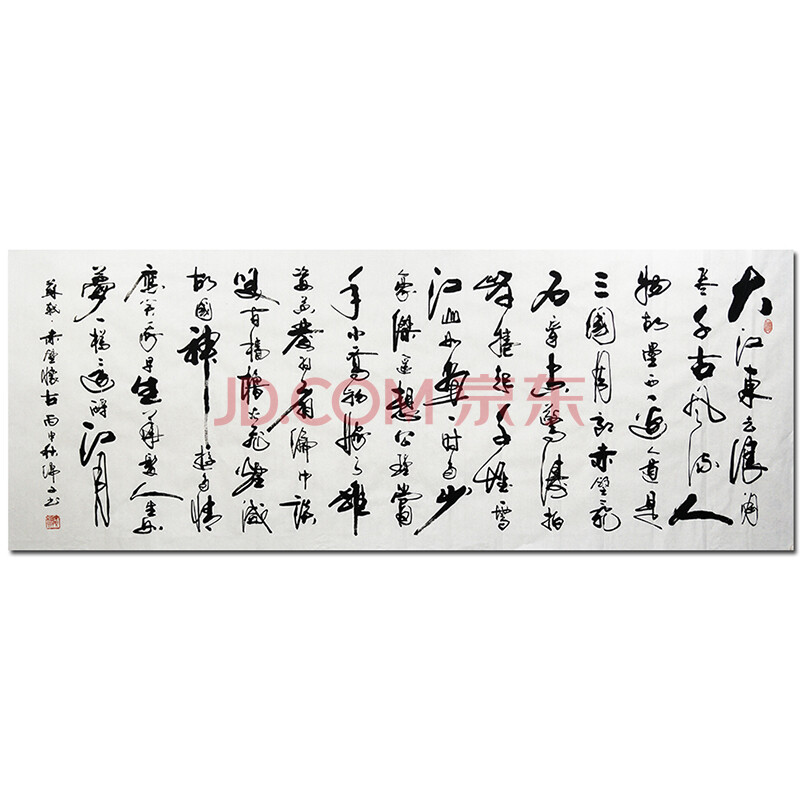 大江東去浪淘
盡千古風流人
物故壘西邊人道是
三國周郎赤壁亂
石穿空驚濤拍
岸捲起千堆雪
江山如畫一時多少
豪傑遙想公瑾當
年小喬初嫁了雄
姿英發羽扇綸巾談
笑間檣櫓灰飛煙滅
故國神遊多情
應笑我早生華髮人生如
夢一樽還酹江月
蘇軾·赤壁懷古丙申秋書
JD.COM 京东